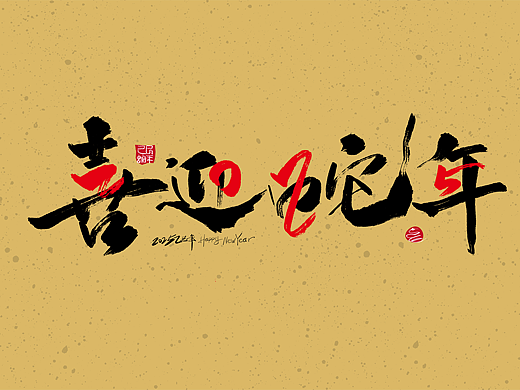 喜迎蛇年
2025乙巳年 Happy New Year